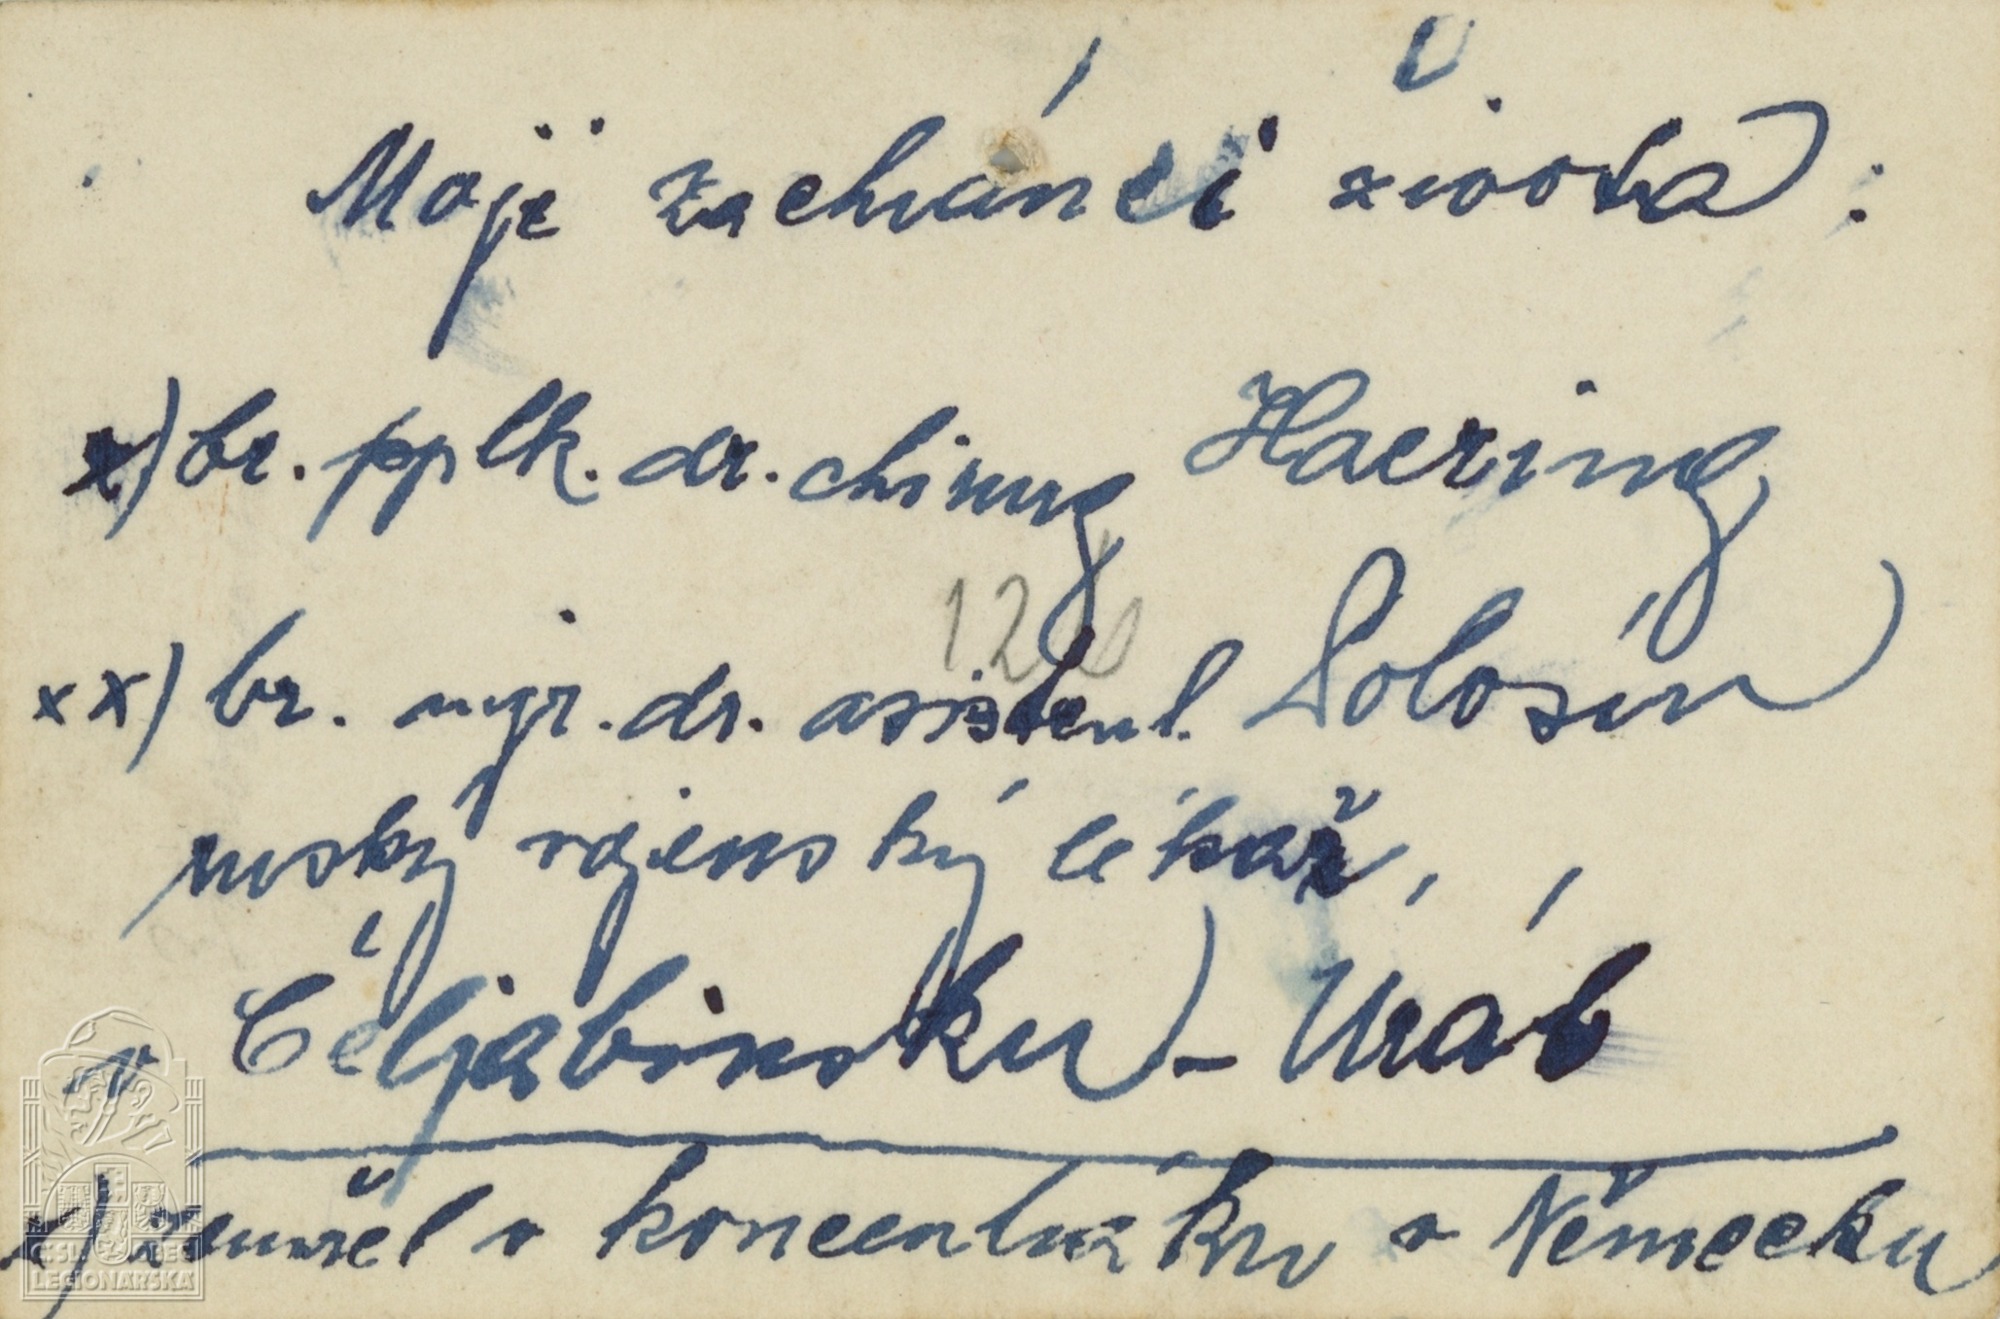 Moji zachránci života:
x) br. pplk. dr. chirurg Haering
12
xx) br. mgr. dr. asistent. Solosín
ruský vojenský lékař,
v Čeljabinsku - Urál
x) zemřel v koncentráku v Německu
ČSL. OBEC
LEGIONÁŘSKÁ